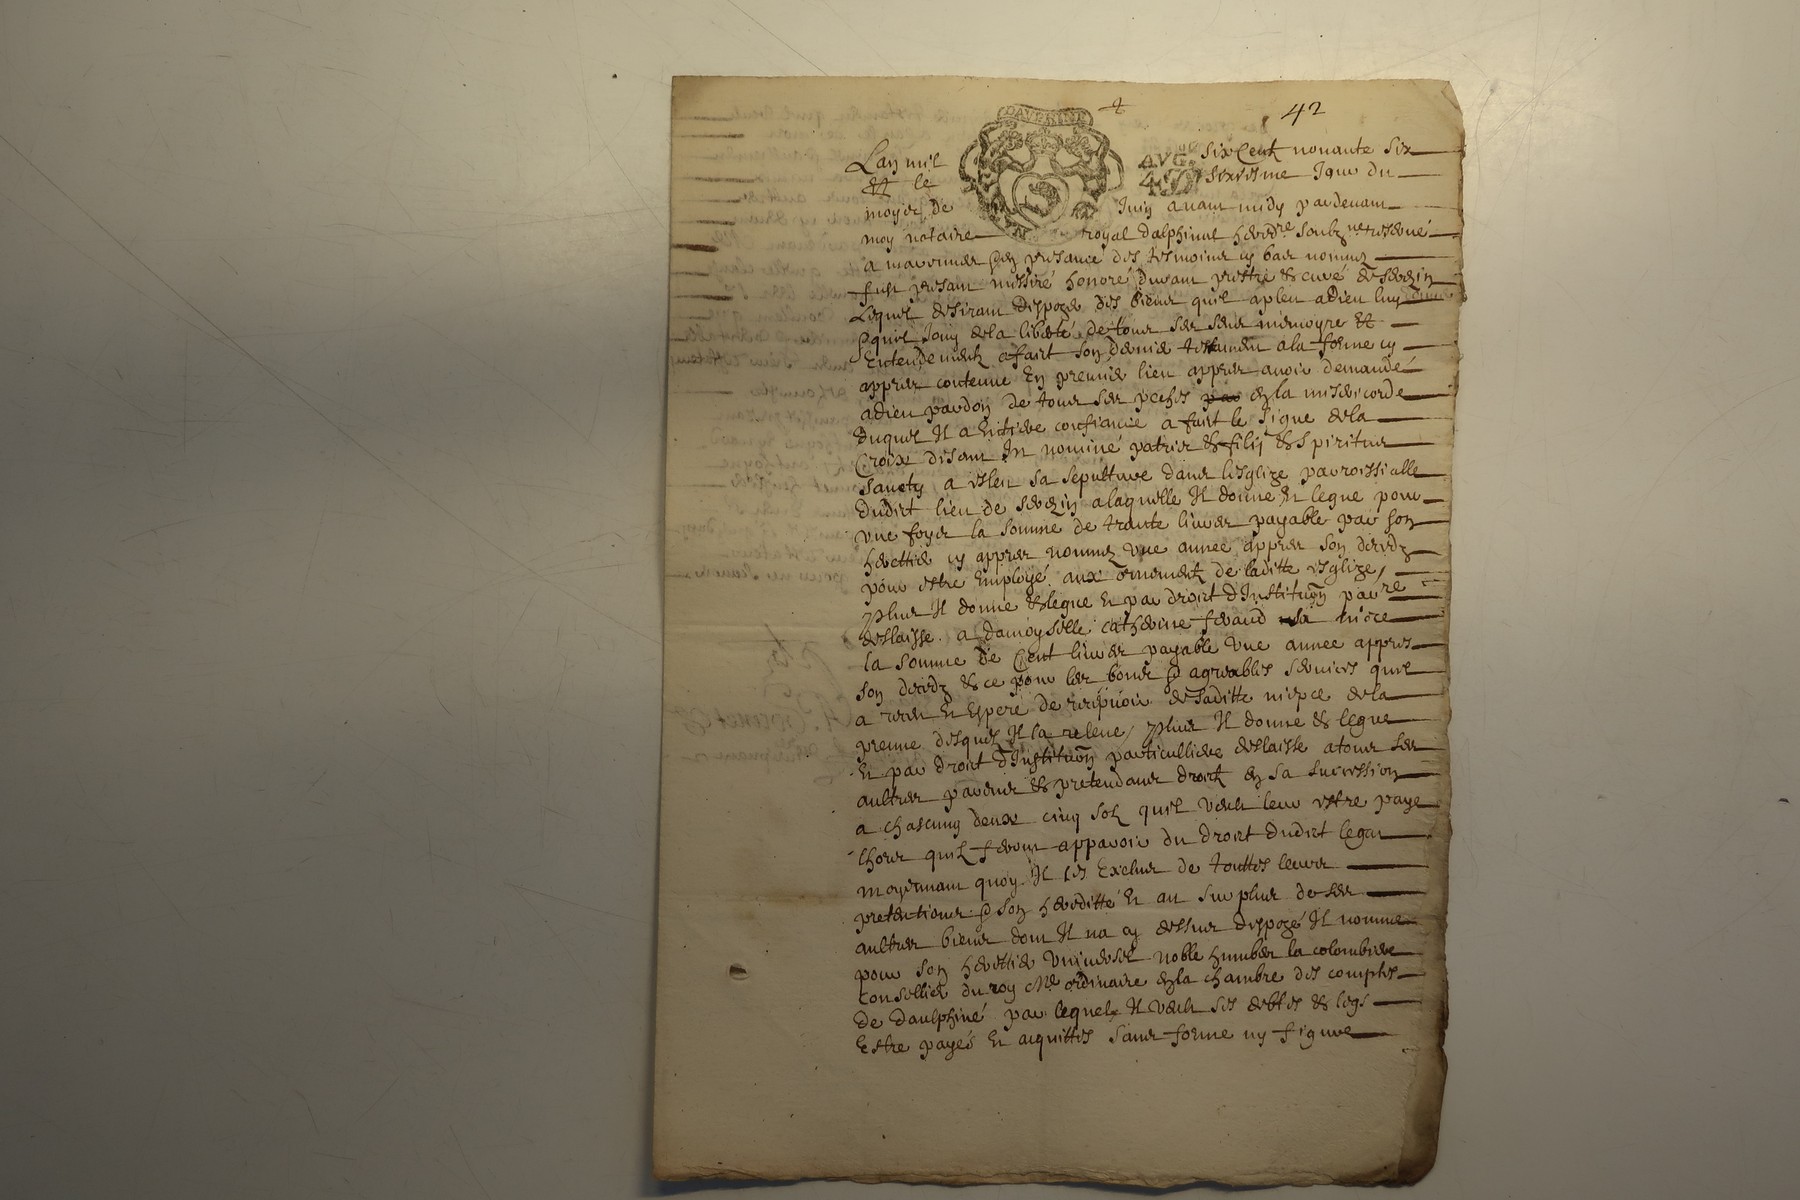 42
Lan mil six Cent nonante six
Et le sixiesme Jour du
moyes de Juin avant midy pardevant
moy notaire royal dalphinal hered.re soubz.né reservé
a mariener & en presance des tesmoins cy bas nommez
fust presant messire honoré durant prestre & curé de serezin
Lequel desirant dispozer des biens quil a pleu a dieu luy
& quil Jouy de la liberté de tous ses sens memoyre Et
Entendement a faict son dernier testament a la forme cy
appres contenue En premier lieu appres avoir demandé
a dieu pardon de tous ses peches en la misericorde
duquel Il a Entiere confiance a faict le signe de la
Croix disant In nomine patris & filij & spiritus
sancty a esleu sa sepulture dans lesglize parroissialle
dudict lieu de serezin a laquelle Il donne En legue pour
une foyes la somme de trante livres payable par son
herettier cy appres nommez une annee appres son decedz
pour estre Employé aux ornements de laditte esglize,
plus Il donne & legue En par droict dInstitution par.re
deslaisse a damoyselle catherine feraud sa niece
la somme de Cent livres payable une annee appres
son decedz & ce pour les bons & agreables services quil
a receu En Espere de recepvoir de saditte niepce de la
preuve desquels Il la releve, plus Il donne & legue
En par droict dInstitution particulliere deslaisse a tous ses
aultres parens & pretendans droict en sa succession
a chascung deux cinq solz quil veult leur estre paye
lhors quilz feront apparoir du droict dudict legat
moyennant quoy Il les Exclus de touttes leurs
pretentions & son heredittè En au surplus de ses
aultres biens dont Il na cy dessus dispozé Il nomme
pour son herettier universel noble humber la colombiere
Consellier du roy M.e ordinaire en la chambre des comptes
de daulphiné par lequel Il veult ses debtes & legs
Estre payés En aquittes sans forme ny figure